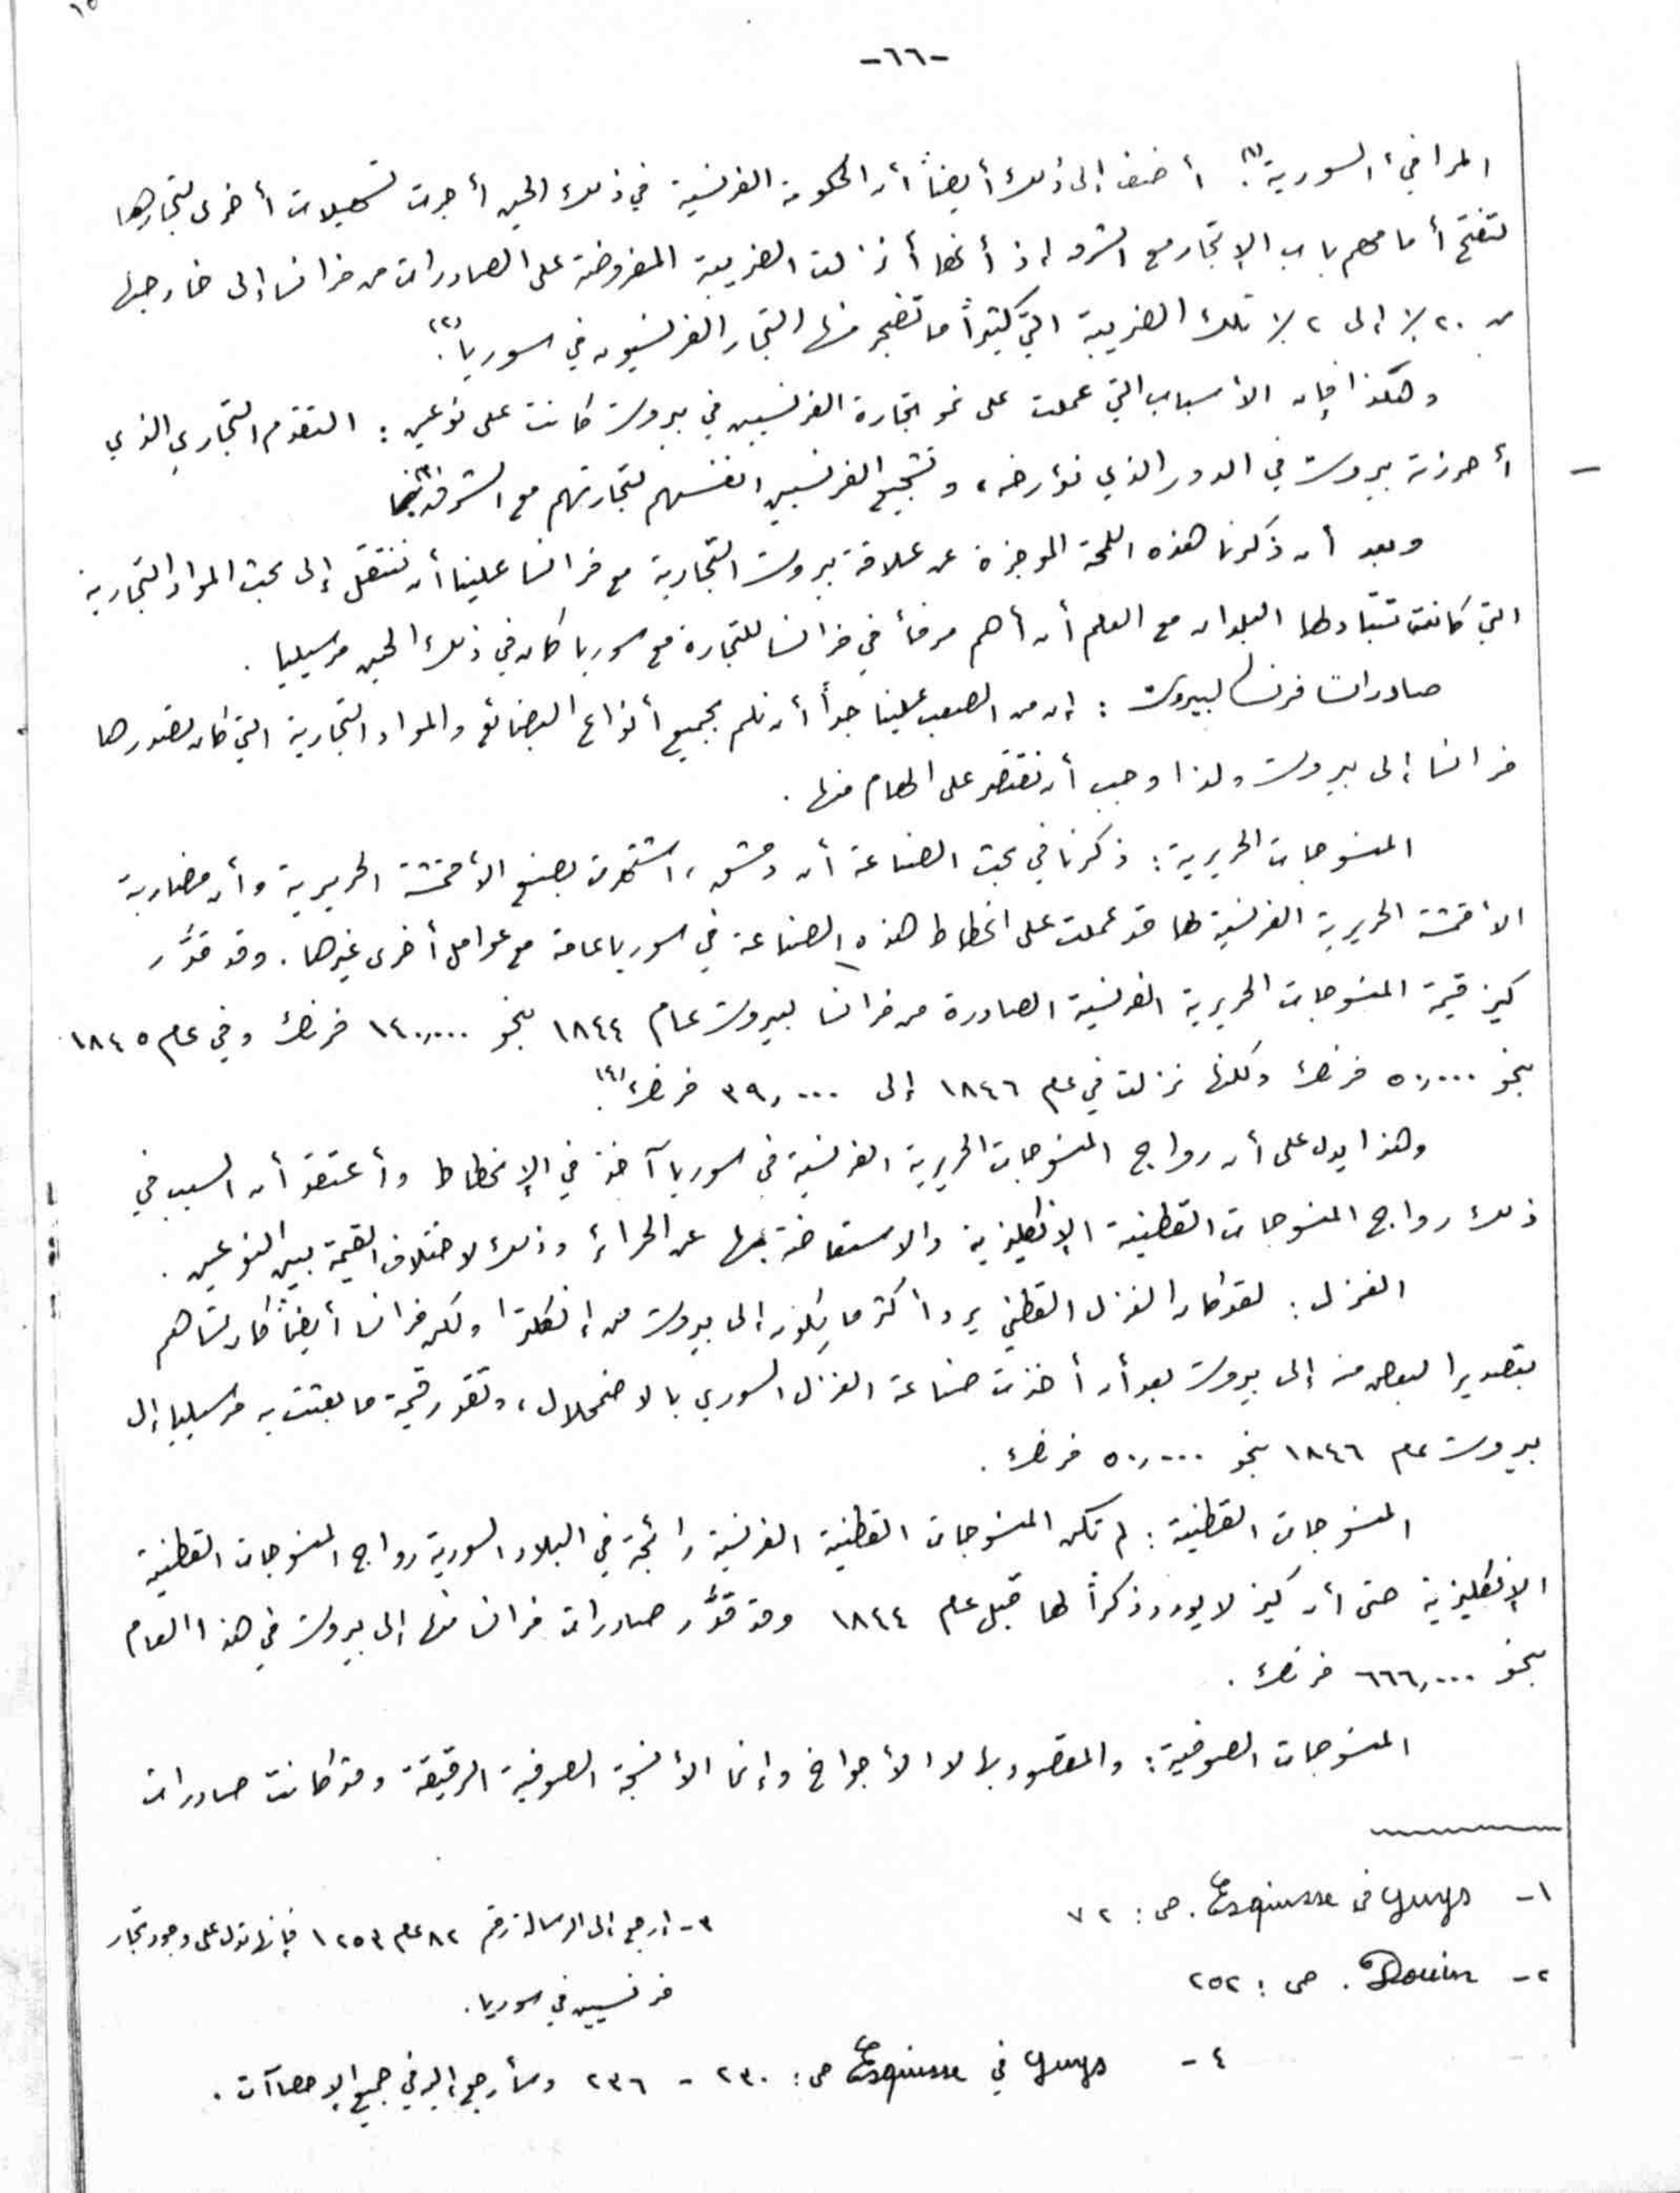 -٦٦-
المرافئ السورية(١). أضف إلى ذلك أيضاً أن الحكومة الفرنسية في ذلك الحين أجرت تسهيلات أخرى لتجارها
لتفتح أمامهم باب الإتجار مع الشرق إذ أنها أنزلت الضريبة المفروضة على الصادرات من فرانسا إلى خارجها
من ٢٠٪ إلى ٢٪ تلك الضريبة التي كثيراً ما تضجر منها التجار الفرنسيون في سوريا(٢).
وهكذا فإن الأسباب التي عملت على نمو تجارة الفرنسيين في بيروت كانت على نوعين: التقدم التجاري الذي
أحرزته بيروت في الدور الذي نؤرخه، وتشجيع الفرنسيين انفسهم لتجارتهم مع الشرق(٣)
وبعد أن ذكرنا هذه اللمحة الموجزة عن علاقة بيروت التجارية مع فرانسا علينا أن ننتقل إلى بحث المواد التجارية
التي كانت تتبادلها البلدان مع العلم أن أهم مرفأ في فرانسا للتجارة مع سوريا كان في ذلك الحين مرسيليا.
صادرات فرنسا لبيروت: إن من الصعب علينا جداً أن نلم بجميع أنواع البضائع والمواد التجارية التي كان تصدرها
فرانسا إلى بيروت ولذا وجب أن نقتصر على الهام منها.
المنسوجات الحريرية: ذكرنا في بحث الصناعة أن دمشق، اشتهرت بصنع الأقمشة الحريرية وأن مضاربة
الأقمشة الحريرية الفرنسية لها قد عملت على انحطاط هذه الصناعة في سوريا عامة مع عوامل أخرى غيرها. وقد قدَّر
كيز قيمة المنسوجات الحريرية الفرنسية الصادرة من فرانسا لبيروت عام ١٨٤٤ بنحو ١٤٠,٠٠٠ فرنك وفي عام ١٨٤٥
بنحو ٥٠,٠٠٠ فرنك ولكنها نزلت في عام ١٨٤٦ إلى ٣٩,٠٠٠ فرنك(٤).
وهذا يدل على أن رواج المنسوجات الحريرية الفرنسية في سوريا آخذ في الإنحطاط وأعتقد أن السبب في
ذلك رواج المنسوجات القطنية الإنكليزية والاستعاضة بها عن الحرائر وذلك لاختلاف القيمة بين النوعين.
الغزل: لقد كان الغزل القطني يرد أكثر ما يكون إلى بيروت من إنكلترا ولكن فرانسا أيضاً كان تساهم
بتصدير البعض منه إلى بيروت بعد أن أخذت صناعة الغزل السوري بالاضمحلال، وتقدر قيمة ما بعثت به مرسيليا إلى
بيروت عام ١٨٤٦ بنحو ٥٠,٠٠٠ فرنك.
المنسوجات القطنية: لم تكن المنسوجات القطنية الفرنسية رائجة في البلاد السورية رواج المنسوجات القطنية
الإنكليزية حتى أن كيز لا يورد ذكراً لها قبل عام ١٨٤٤ وقد قدَّر صادرات فرانسا منها إلى بيروت في هذا العام
بنحو ٦٦٦,٠٠٠ فرنك.
المنسوجات الصوفية: والمقصود بها لا الأجواخ وإنما الأنسجة الصوفية الرقيقة وقد كانت صادرات
١- Guys في Esquisse. ص: ٧٢
٢- Douin. ص: ٢٥٢
٣- إرجع إلى الرسالة رقم ٨٢ عام ١٢٥٣ فإنها تدل على وجود تجار
فرنسيين في سوريا.
٤- Guys في Esquisse ص: ٢٣٠ - ٢٣٦ وسأرجع إليه في جميع الإحصاآت.